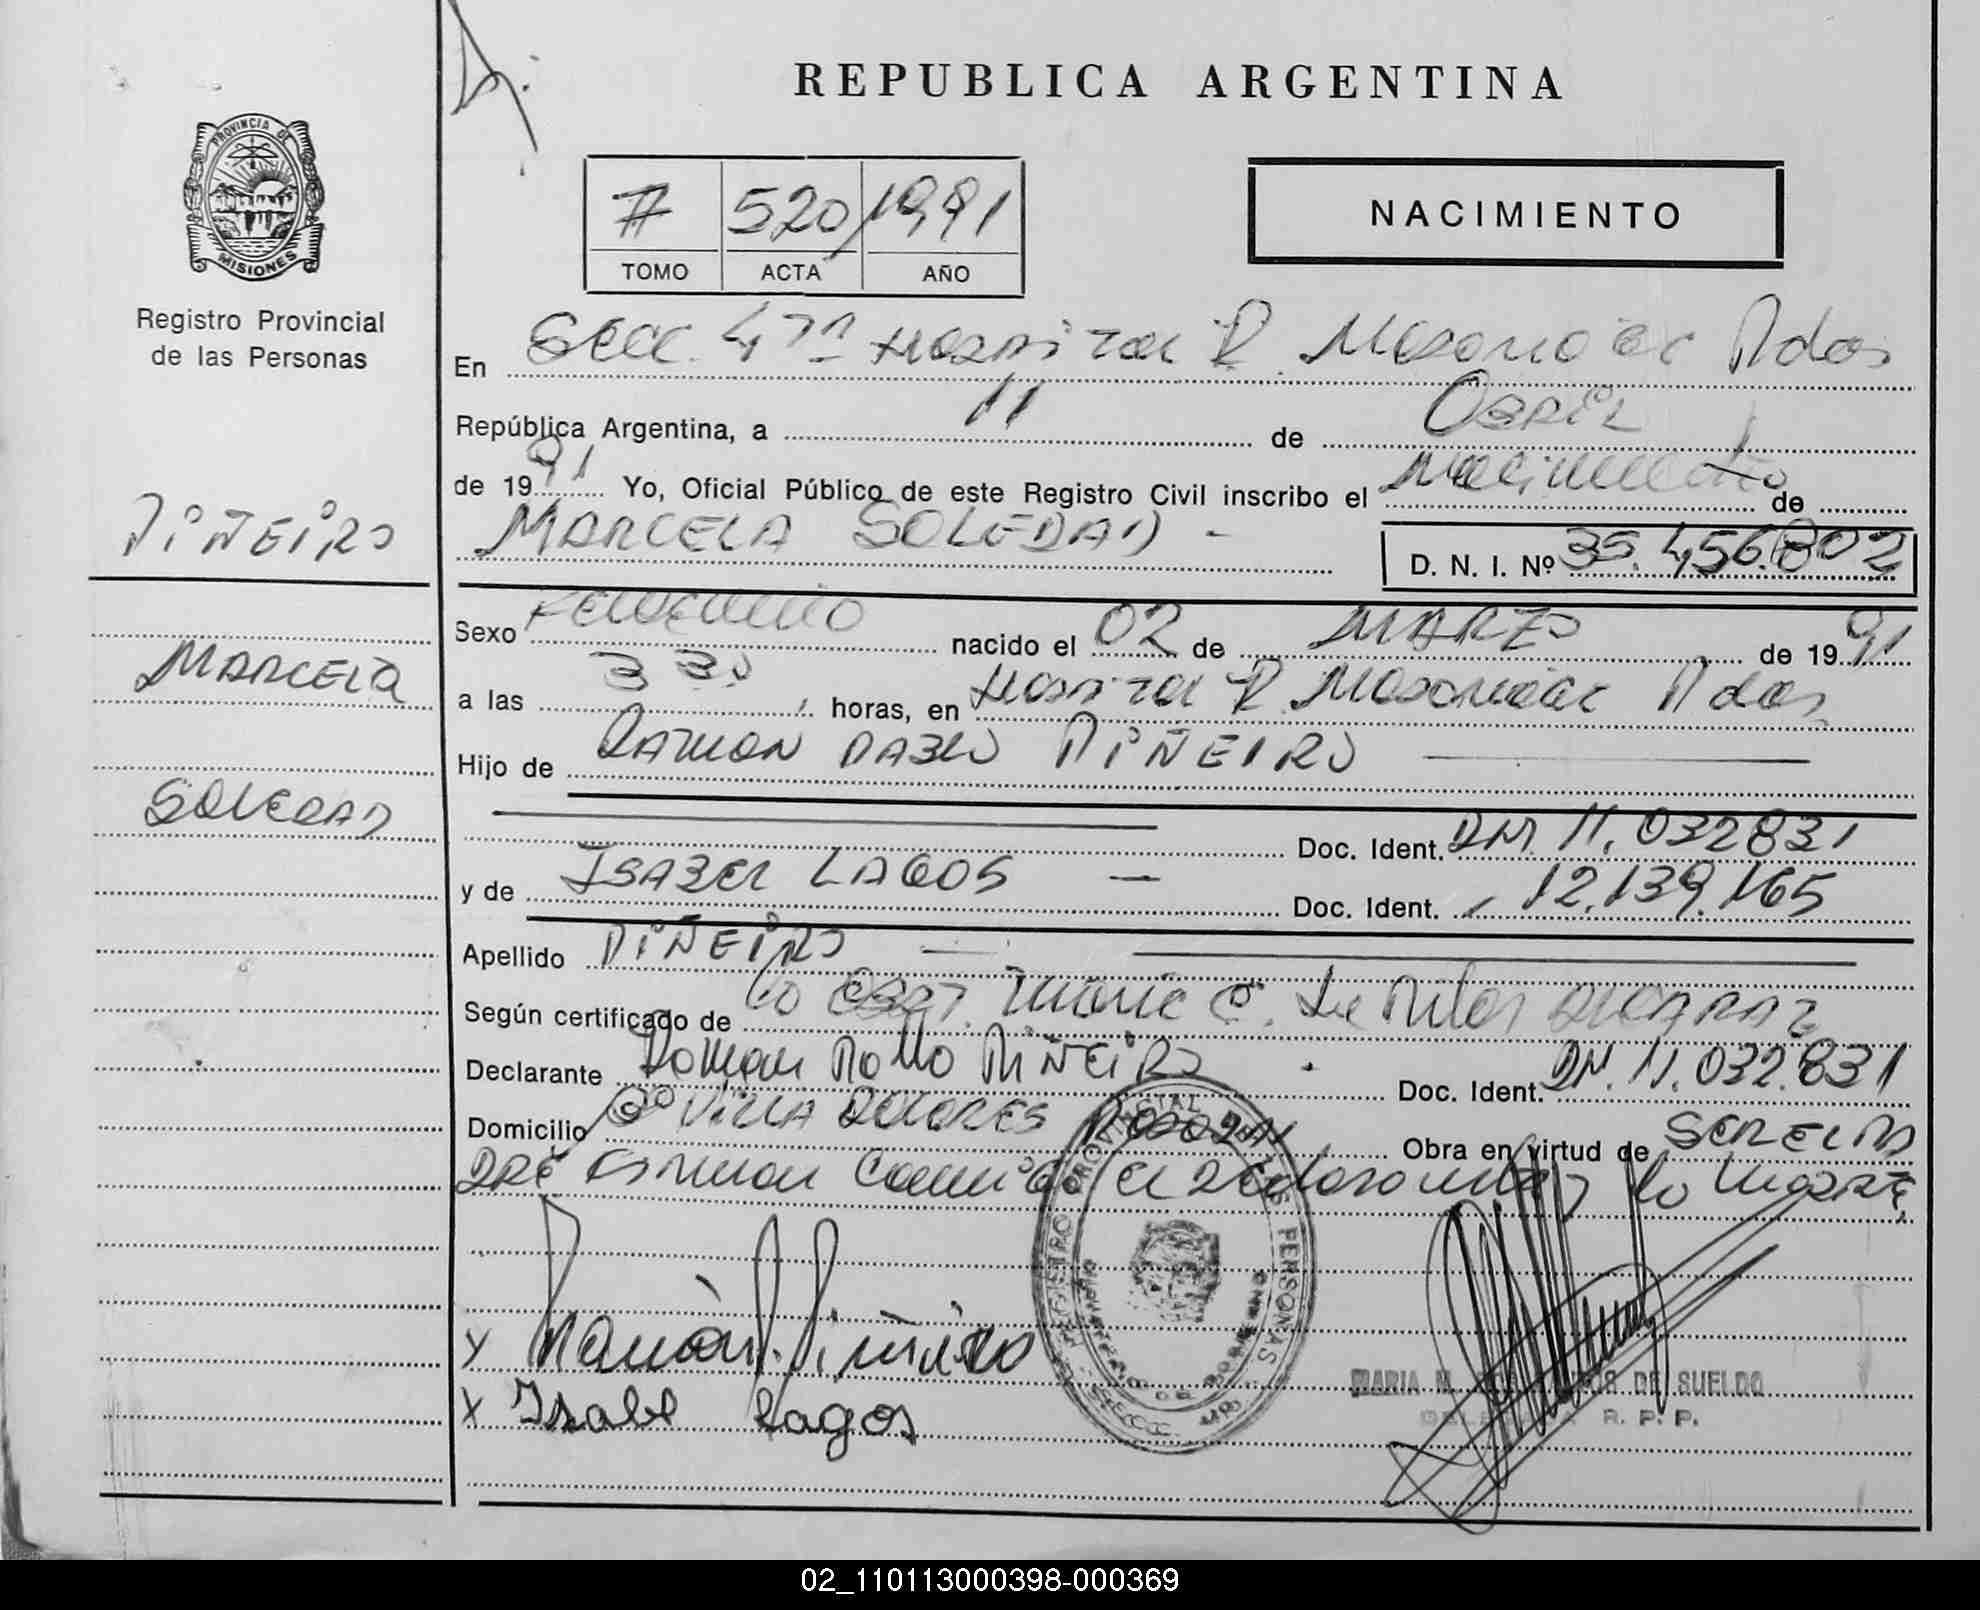 REPUBLICA ARGENTINA
PROVINCIA DE
MISIONES
Registro Provincial
de las Personas
7 520 1991
TOMO ACTA AÑO
NACIMIENTO
En Secc. 4 7ª Hospital R. Madariaga Pdas
República Argentina, a 11 de Abril
de 19 91 Yo, Oficial Público de este Registro Civil inscribo el Nacimiento de
MARCELA SOLEDAD - D. N. I. Nº 35.456.802
PIÑEIRO
MARCELA
SOLEDAD
Sexo Femenino nacido el 02 de MARZO de 19 91
a las 3 30 horas, en Hospital R. Madariaga Pdas
Hijo de RAMON PABLO PIÑEIRO
Doc. Ident. DNI. 11.032831
y de ISABEL LAGOS — Doc. Ident. 12.139.165
Apellido PIÑEIRO
Según certificado de la Obst.
Declarante Ramon Pablo PIÑEIRO Doc. Ident. DN. 11.032.831
Domicilio Bº VILLA DOLORES Obra en virtud de SER EL PA
DRE
REGISTRO PROVINCIAL DE LAS PERSONAS
Ramón P. Piñeiro
X Isabel Lagos
MARIA DE SUELDO
R. P. P.
02_110113000398-000369